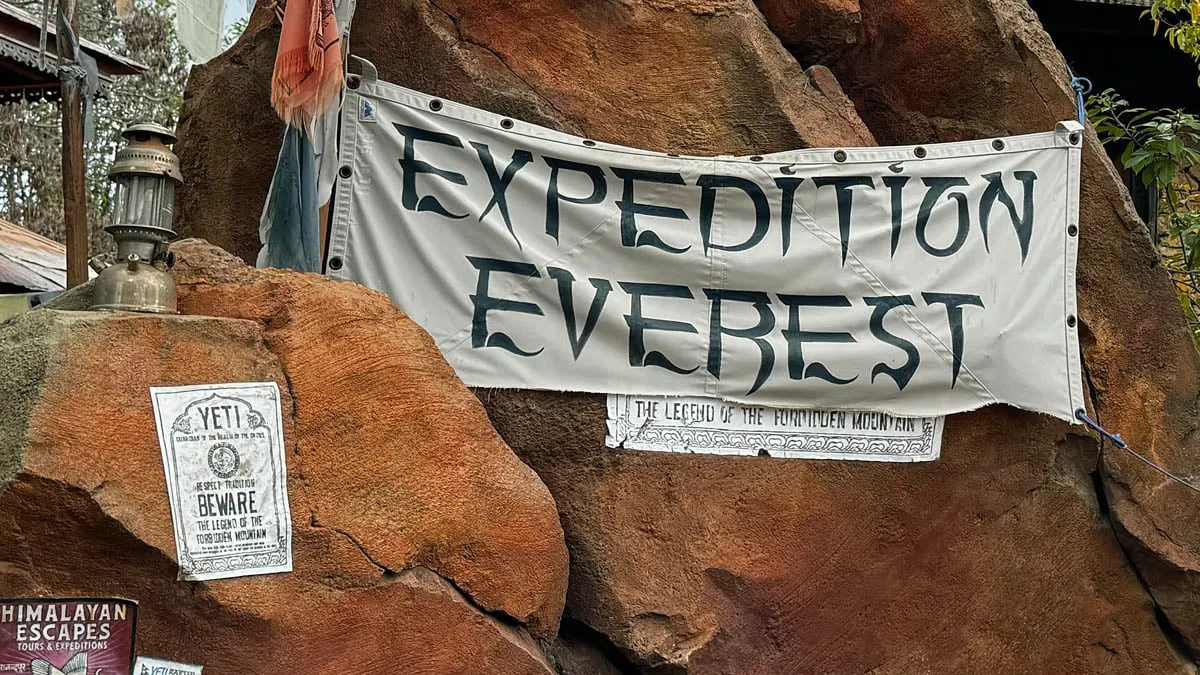 EXPEDITION
EVEREST
THE LEGEND OF THE FORBIDDEN MOUNTAIN
YETI
GUARDIAN OF THE REALM OF THE SNOWS
RESPECT TRADITION
BEWARE
THE LEGEND OF THE
FORBIDDEN MOUNTAIN
HIMALAYAN
ESCAPES
TOURS & EXPEDITIONS
YETI